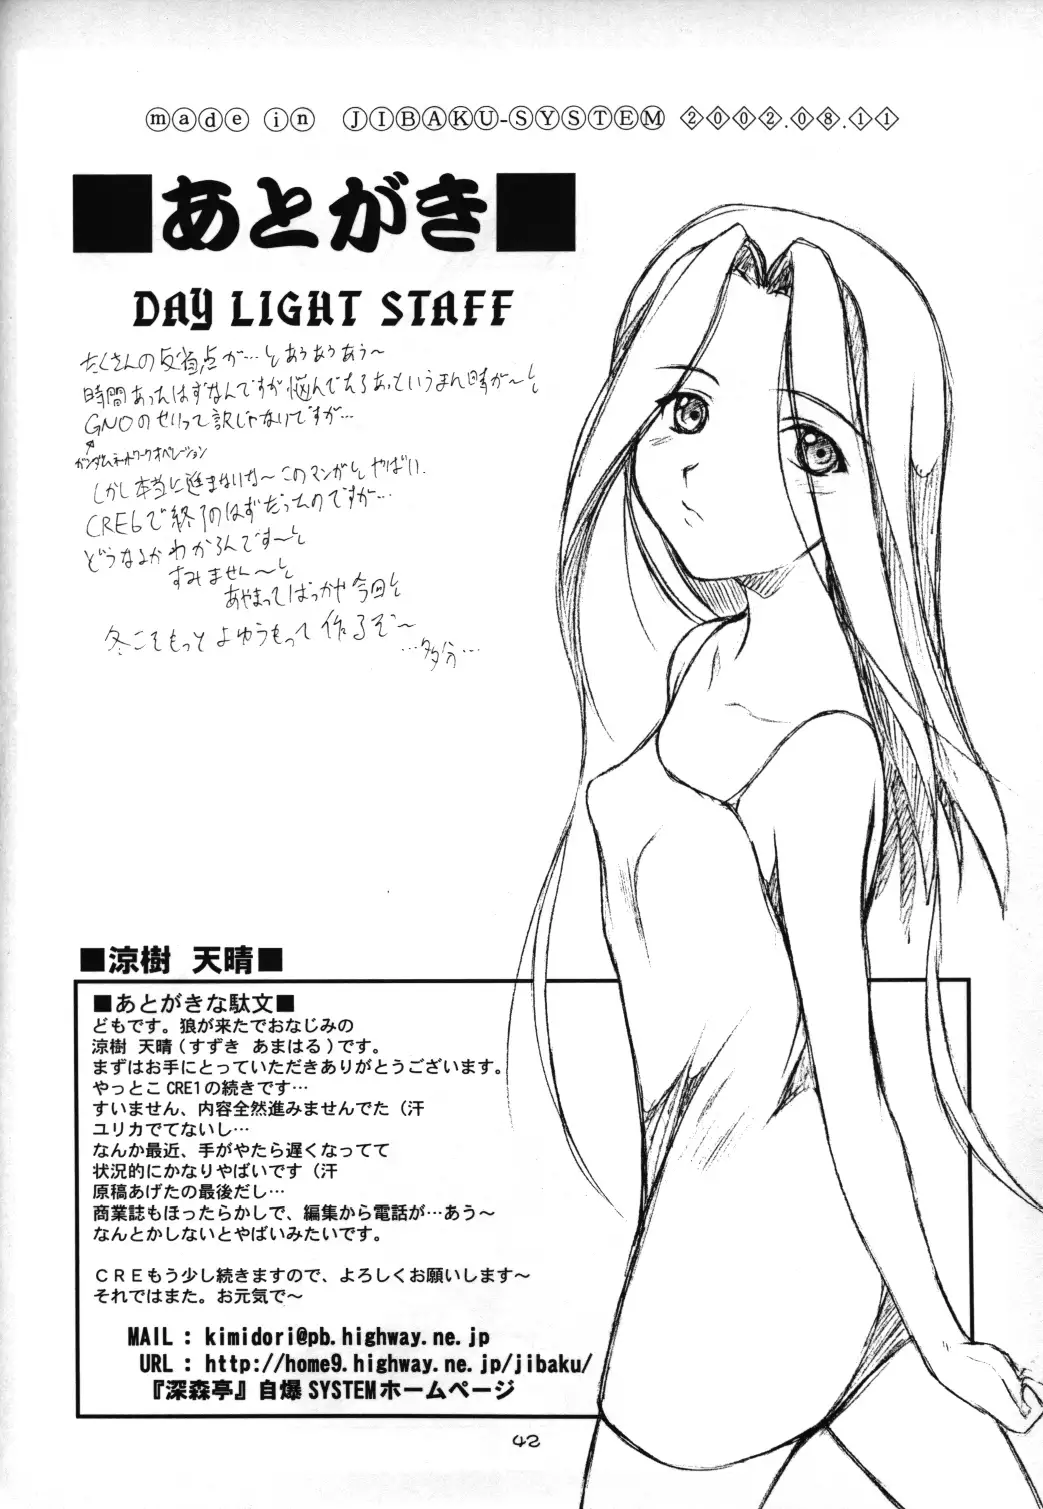 made in JIBAKU-SYSTEM 2002.08.11
■あとがき■
DAY LIGHT STAFF
たくさんの反省点が…とあうあうあう～
時間あったはずなんですが悩んでたらあっというまん時が～と
GNOのせいって訳じゃないですが…
ガンダムネットワークオペレーション
しかし本当に進まないな～このマンガとやばい.
CRE6で終了のはずだったのですが…
どうなるかわからんです～と
すみません～と
あやまってばっかや今回と
冬こそもっとよゆうもって作るぞ～
…多分…
■涼樹 天晴■
■あとがきな駄文■
どもです。狼が来たでおなじみの
涼樹 天晴(すずき あまはる)です。
まずはお手にとっていただきありがとうございます。
やっとこCRE1の続きです…
すいません、内容全然進みませんでた（汗
ユリカでてないし…
なんか最近、手がやたら遅くなってて
状況的にかなりやばいです（汗
原稿あげたの最後だし…
商業誌もほったらかしで、編集から電話が…あう～
なんとかしないとやばいみたいです。
ＣＲＥもう少し続きますので、よろしくお願いします～
それではまた。お元気で～
MAIL : kimidori@pb.highway.ne.jp
URL : http://home9.highway.ne.jp/jibaku/
『深森亭』自爆SYSTEMホームページ
42